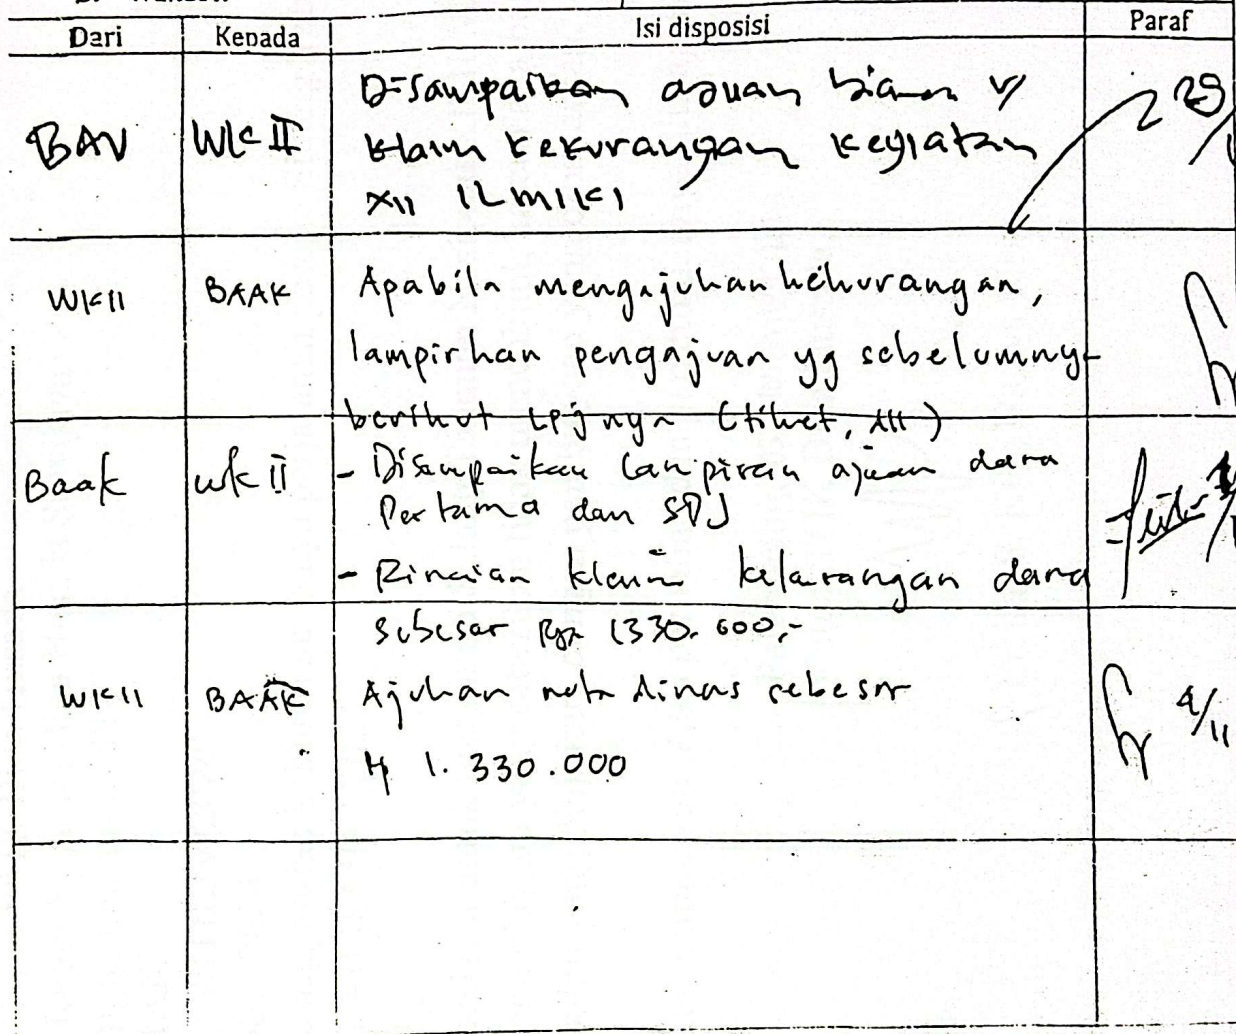 Dari Kepada Isi disposisi Paraf
BAV WK II Disampaikan ajuan biaya u/ 29/
klaim kekurangan kegiatan
XII ILMIKI
WKII BAAK Apabila mengajukan kekurangan,
lampirkan pengajuan yg sebelumnya
berikut LPJnya (tiket, dll)
Baak WK II - Disampaikan lampiran ajuan dana
Pertama dan SPJ
- Rincian klaim kekurangan dana
sebesar Rp. 1330.000,-
WKII BAAK Ajukan nota dinas sebesar 4/11
Rp 1.330.000